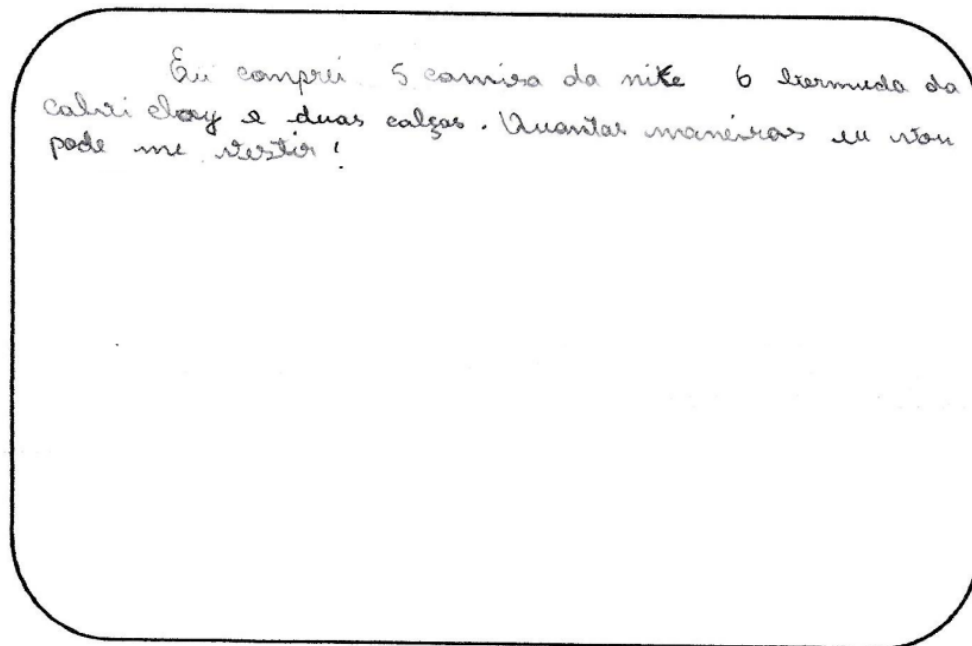 Eu comprei 5 camisa da nike 6 bermuda da
calvi clay e duas calças. Quantas maneiras eu vou
pode me vestir!